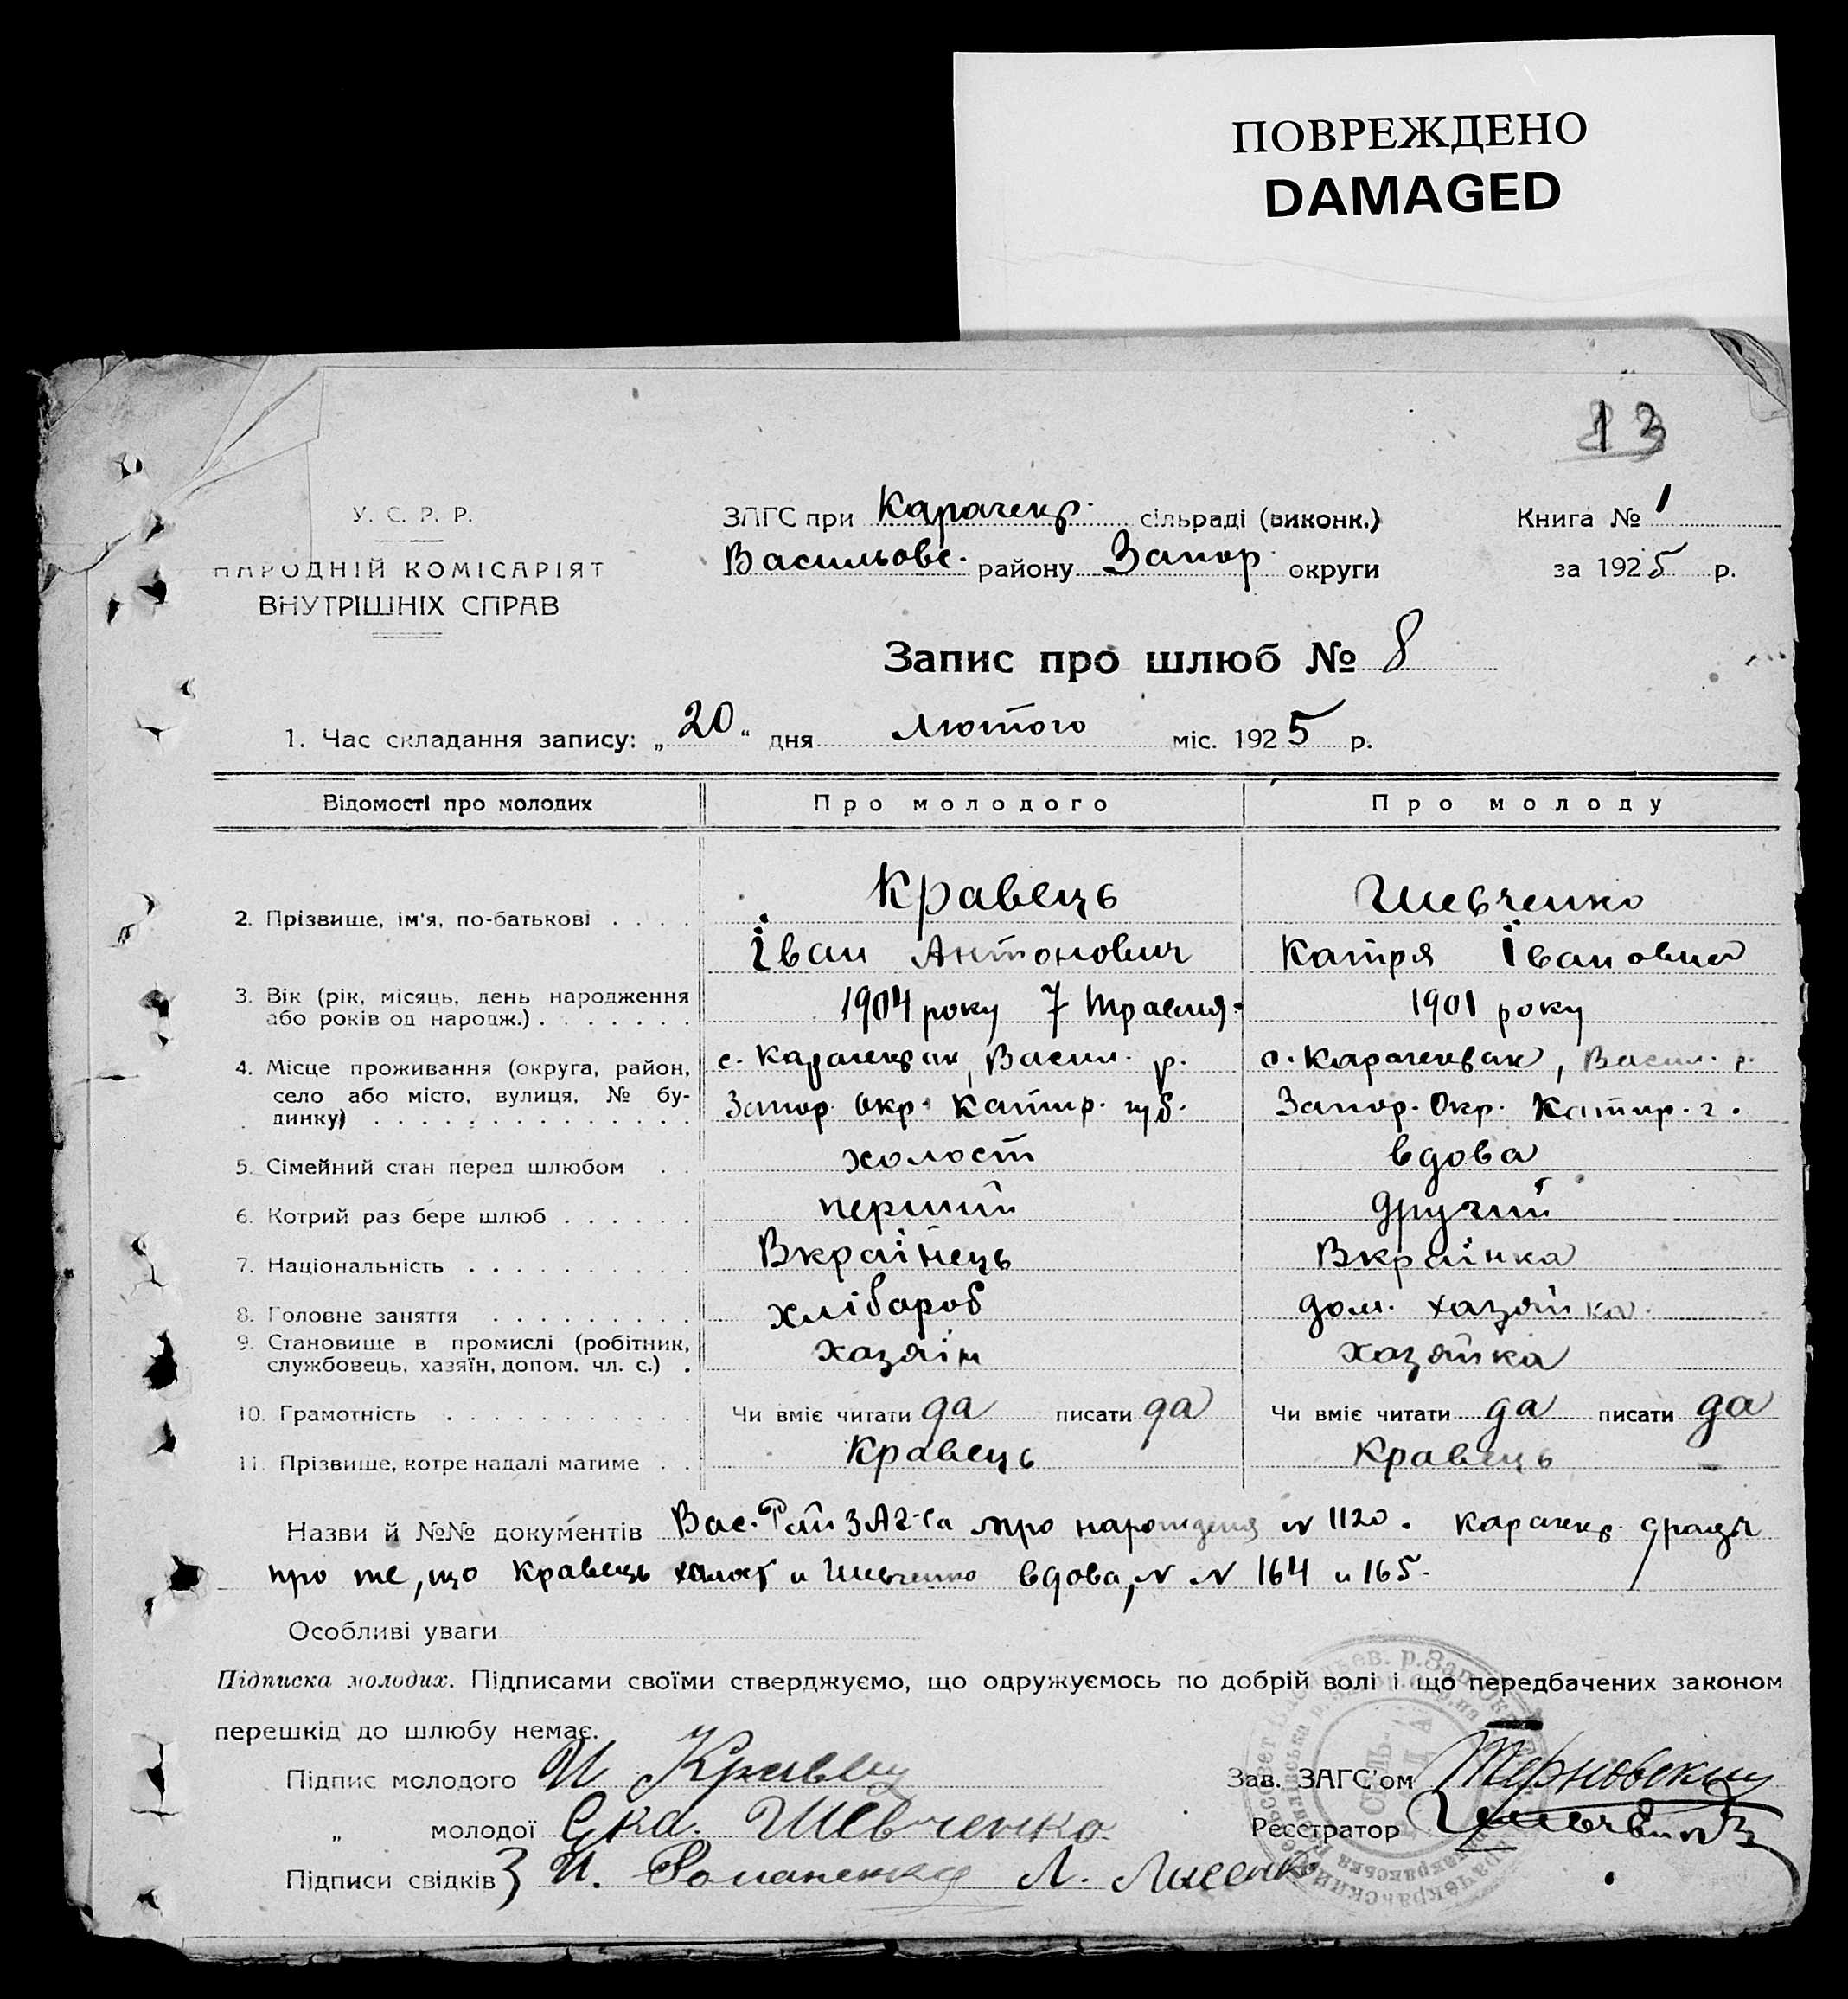 ПОВРЕЖДЕНО
DAMAGED
13
У. С. Р. Р.
НАРОДНІЙ КОМІСАРІЯТ
ВНУТРІШНІХ СПРАВ
ЗАГС при Карачекр. сільраді (виконк.)
Васильовс. району Запор. округи
Книга № 1
за 1925 р.
Запис про шлюб № 8
1. Час складання запису: „20“ дня лютого міс. 1925 р.
Відомості про молодих Про молодого Про молоду
2. Прізвище, ім'я, по-батькові . . . . Кравець Шевченко
Іван Антонович Катря Івановна
3. Вік (рік, місяць, день народження або років од народж.) . . . . . . . 1904 року 7 Травня. 1901 року
4. Місце проживання (округа, район, с. Карачекрак, Васил. р. с. Карачекрак, Васил. р.
село або місто, вулиця, № бу- Запор. Окр. Катир. губ. Запор. Окр. Катир. г.
динку) . . . . . . . . . . . . . .
5. Сімейний стан перед шлюбом . . холост вдова
6. Котрий раз бере шлюб . . . . . . перший другий
7. Національність . . . . . . . . . . Вкраінець Вкраінка
8. Головне заняття . . . . . . . . . хлібароб дом. хазяйка.
9. Становище в промислі (робітник, службовець, хазяїн, допом. чл. с.) . хазяін хазяйка
10. Грамотність . . . . . . . . . . . Чи вміє читати да писати да Чи вміє читати да писати да
11. Прізвище, котре надалі матиме . . Кравець Кравець
Назви й №№ документів Вас. Рай ЗАГ-са про нарождення N 1120. Карачекр. с/ради
про те, що Кравець холост и Шевченко вдова, N N 164 и 165.
Особливі уваги
Підписка молодих. Підписами своїми стверджуємо, що одружуємось по добрій волі і що передбачених законом
перешкід до шлюбу немає.
Підпис молодого И Кравец
Зав. ЗАГС'ом Терновский
„ молодої Ека. Шевченко
Реєстратор
Підписи свідків И. Романенко Л. Лисенко